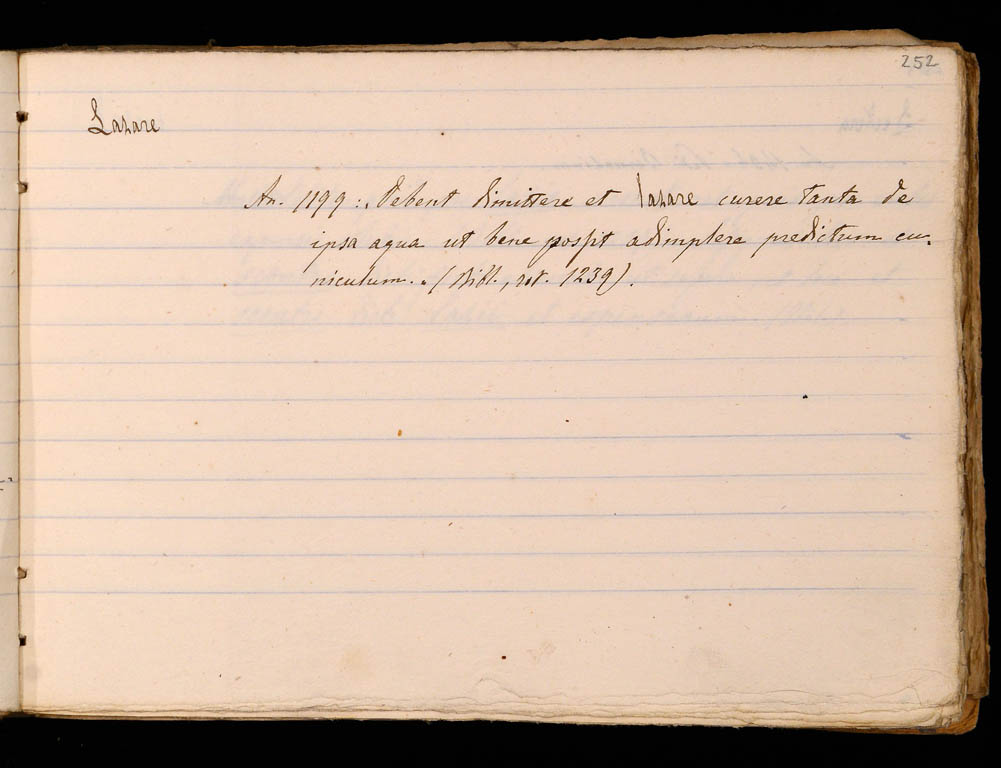 252
Lazare
An. 1199: Debent dimittere et lazare curere tanta de
ipsa aqua ut bene possit adimplere predictum cu-
niculum.. (Bibl., rot. 1239).